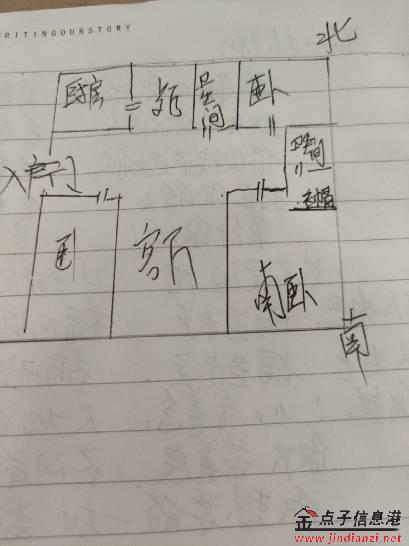 RITINGOURSTORY
北
厨房
餐厅
卫生间
卧
卫生间
入户门
衣帽
卧
客厅
南卧
南
金点子信息港
www.jindianzi.net